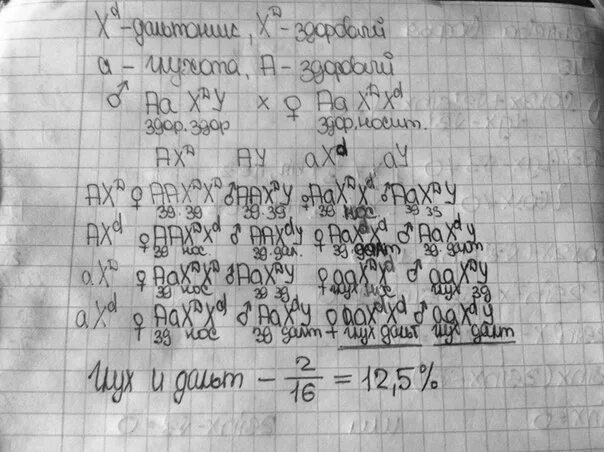 X^d - дальтоник, X^D - здоровый
а - глухота, А - здоровый
♂ Aa X^D Y × ♀ Aa X^D X^d
здор. здор здор. носит.
AX^D AY aX^d aY
AX^D ♀ AAX^DX^D ♂ AAX^DY ♀ AaX^DX^d ♂ AaX^DY
зд. зд зд. зд зд нос зд зд
AX^d ♀ AAX^DX^d ♂ AAX^dY ♀ AaX^dX^d ♂ AaX^dY
зд нос. зд. дал. зд. дальт зд. дальт
aX^D ♀ AaX^DX^D ♂ AaX^DY ♀ aaX^DX^d ♂ aaX^DY
зд нос зд зд глух нос глух зд
aX^d ♀ AaX^DX^d ♂ AaX^dY ♀ aaX^dX^d ♂ aaX^dY
зд нос зд дальт глух дальт глух дальт
Глух и дальт - 2/16 = 12,5%